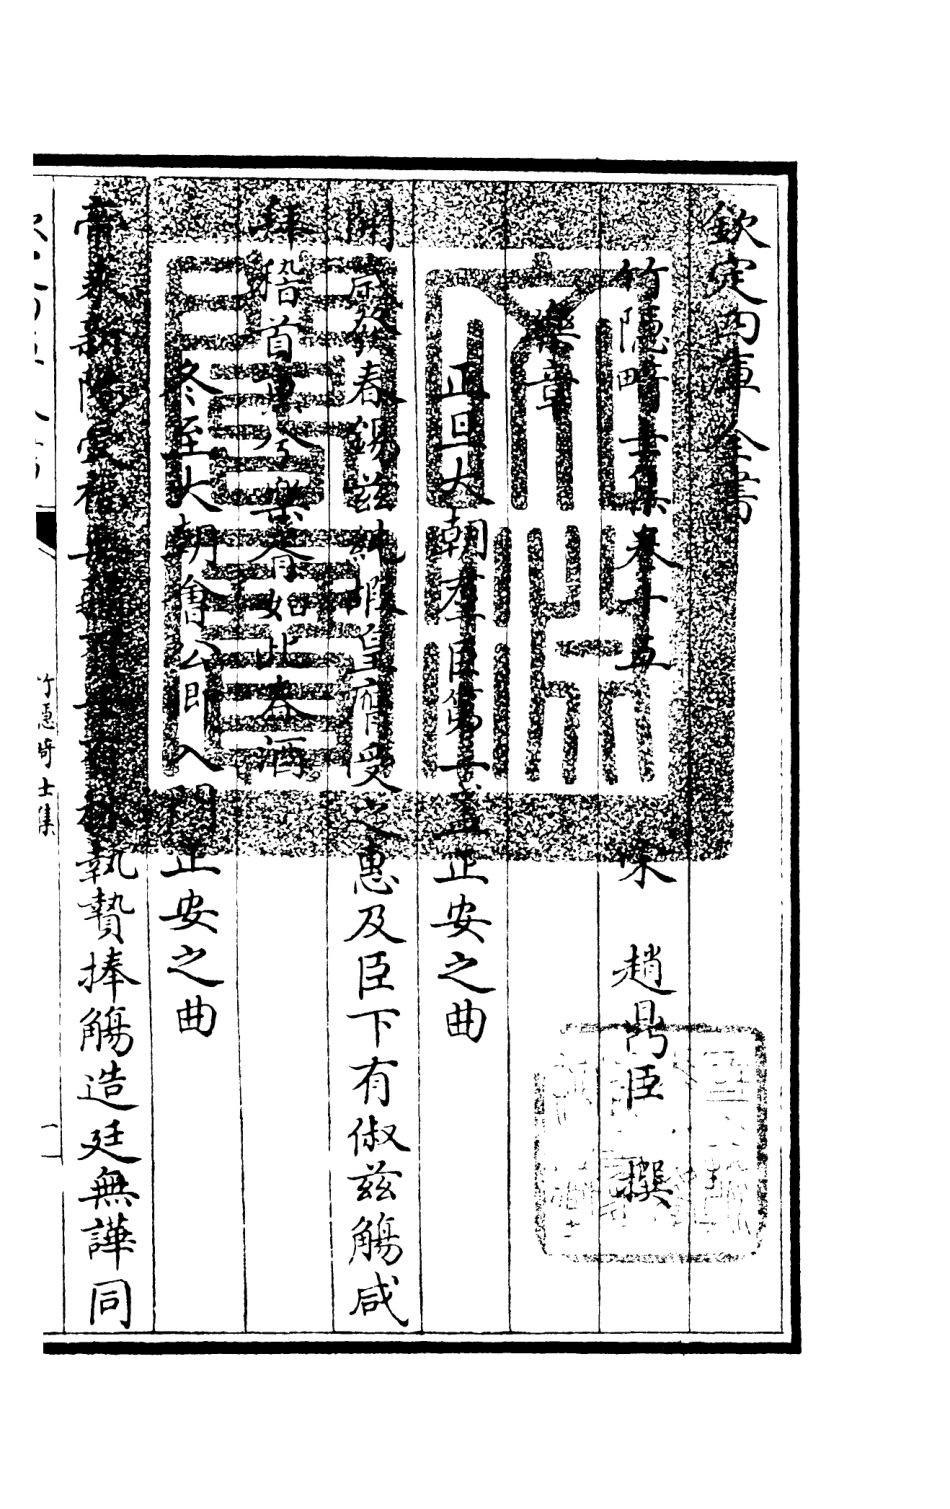 欽定四庫全書
竹隱畸士集卷十五 宋 趙鼎臣 撰
樂章
正旦大朝羣臣第一盞正安之曲
開歲發春錫兹純嘏皇膺受之惠及臣下有俶兹觴咸
拜稽首 兮樂胥如此春酒
冬至大朝會公卿入門正安之曲
帝 新陽受 無 執贄捧觴造廷無譁同
竹隱畸士集